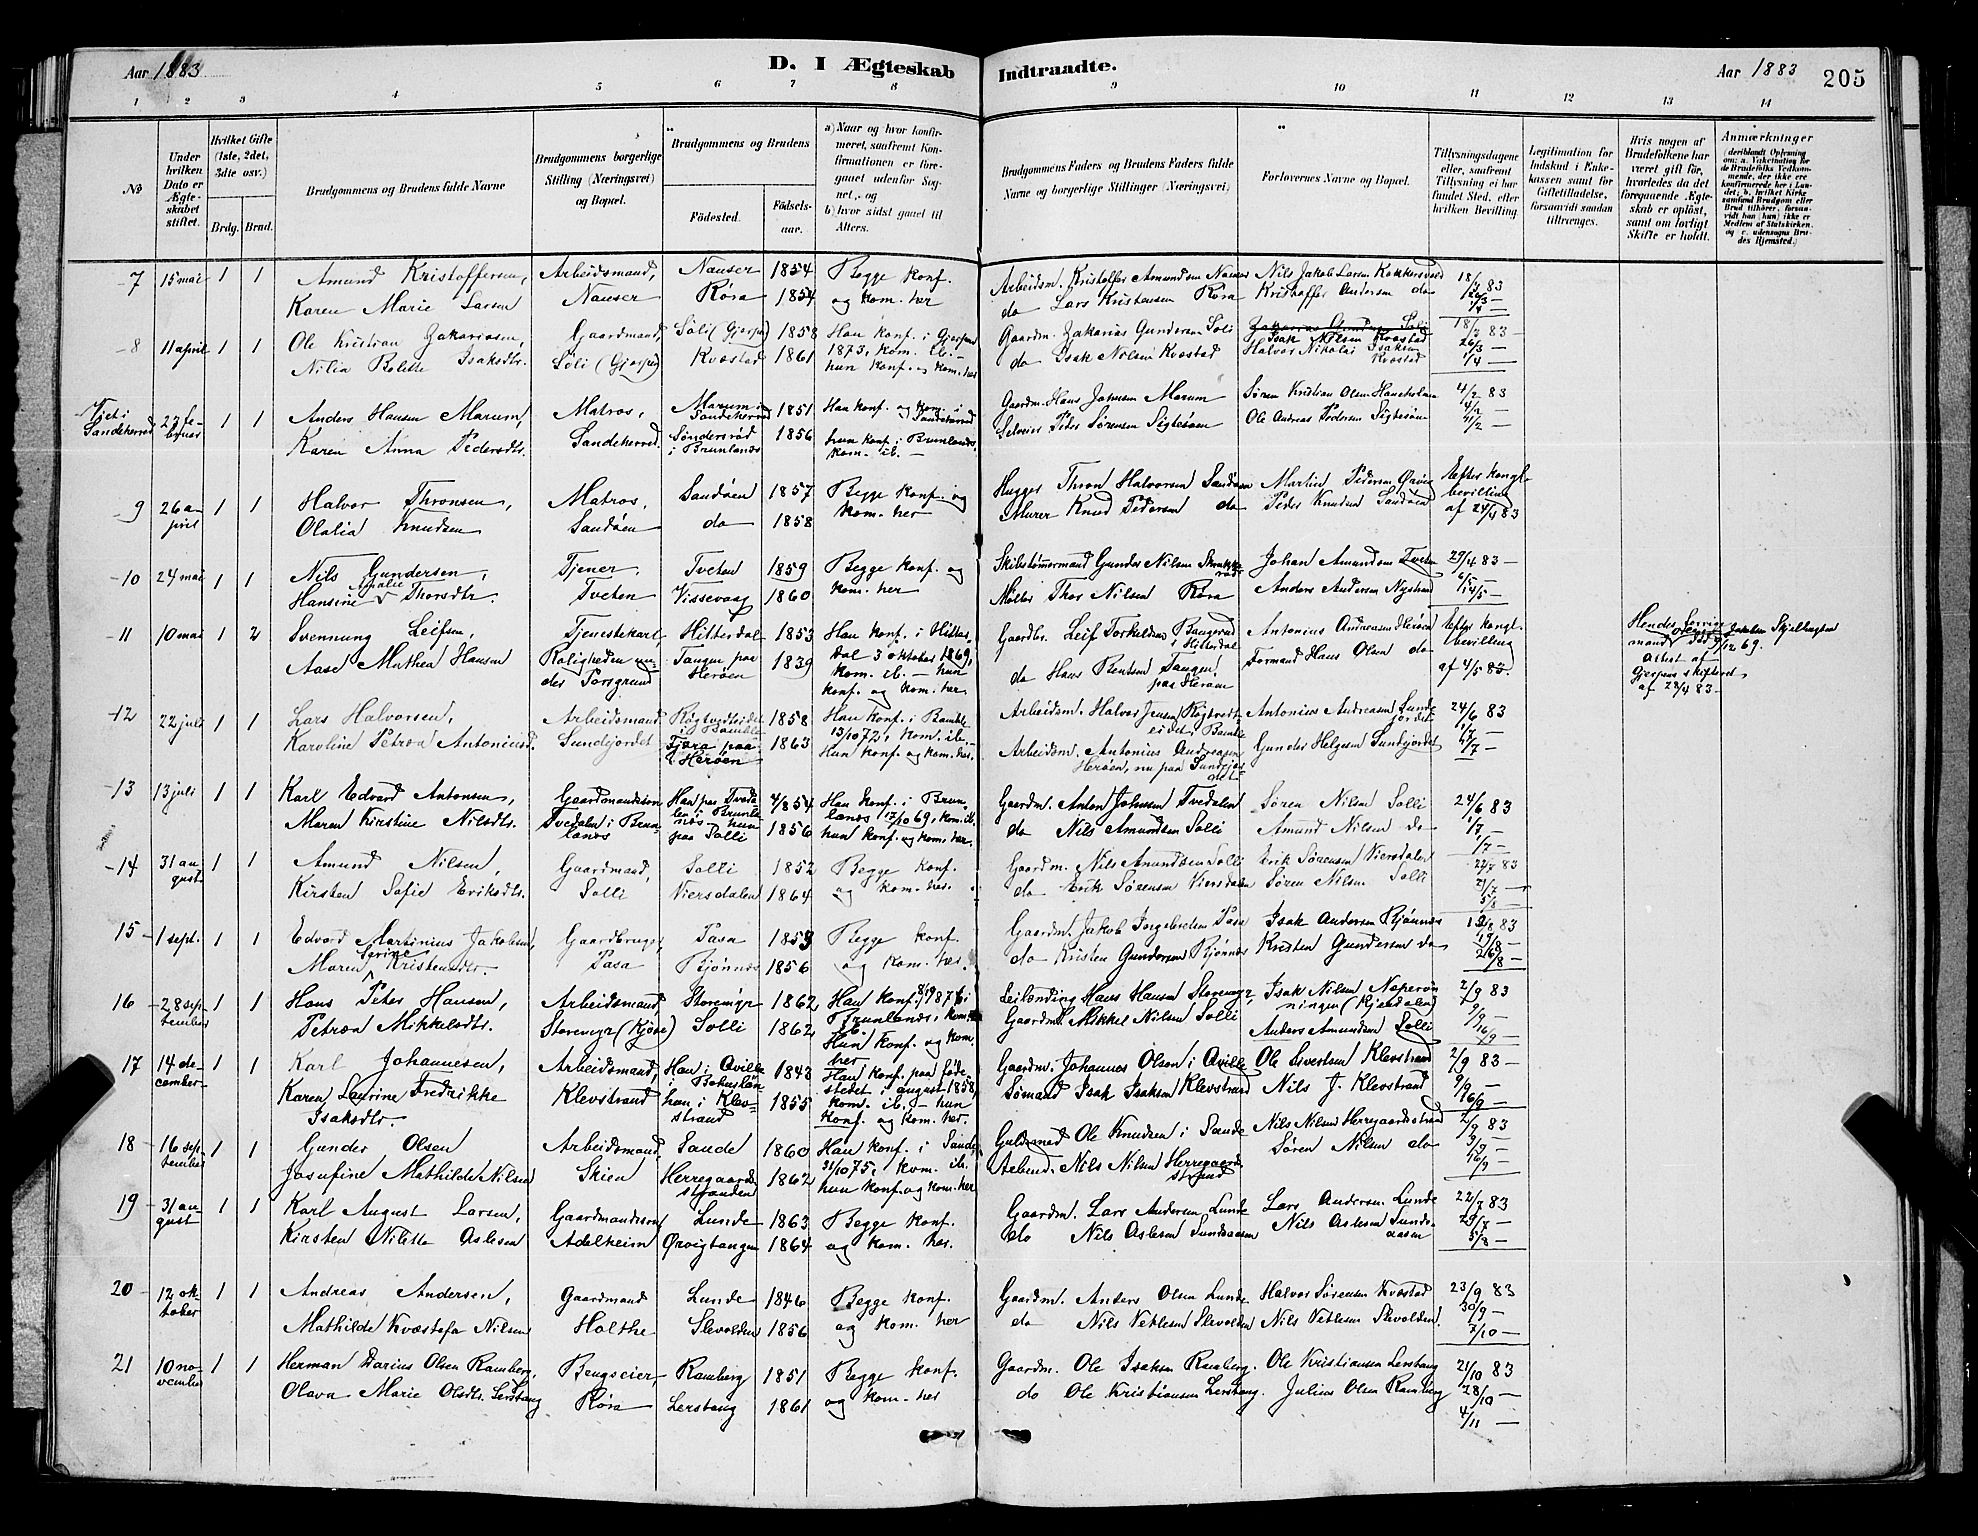 Aar 1883
D. I Ægteskab Indtraadte.
Aar 1883
205
1 2 3 4 5 6 7 8 9 10 11 12 13 14
No
Under hvilken Dato er Ægteskabet stiftet.
Hvilket Gifte (1ste, 2det, 3die osv.)
Brdg. Brud.
Brudgommens og Brudens fulde Navne
Brudgommens borgerlige Stilling (Næringsvei) og Bopæl.
Brudgommens og Brudens
Fødested.
Fødselsaar.
a) Naar og hvor konfirmeret, saafremt Konfirmationen er foregaaet udenfor Sognet, og
b) hvor sidst gaaet til Alters.
Brudgommens Faders og Brudens Faders fulde Navne og borgerlige Stillinger (Næringsvei)
Forlovernes Navne og Bopæl.
Tillysningsdagene eller, saafremt Tillysning ei har fundet Sted, efter hvilken Bevilling.
Legitimation for Indskud i Enkekassen samt for Giftetilladelse, forsaavidt saadan tiltrænges.
Hvis nogen af Brudefolkene har været gift før, hvorledes da det foregaaende Ægteskab er opløst, samt om lovligt Skifte er holdt.
Anmærkninger
(deriblandt Oplysning om: a. Vakcination for de Brudefolks Vedkommende, der ikke ere konfirmerede her i Landet; b. hvilket Kirkesamfund Brudgom eller Brud tilhører, forsaavidt han (hun) ikke er Medlem af Statskirken, og c. udensogns Brudes Hjemsted.)
7 15 mai 1 1 Amund Kristoffersen, Arbeidsmand, Nauser 1854 Begge konf. Arbeidsm. Kristoffer Amundsen Nauser Nils Jakob Larsen Kokkersvold 18/3 83
Karen Marie Larsen Nauser Röra 1854 og kom. her do Lars Kristensen Röra Kristoffer Andersen do 26/3 1/4 —
8 11 april 1 1 Ole Kristian Zakariasen, Gaardmand, Søli (Gjerpen) 1858 Han konf. i Gjerpen Gaardm. Zakarias Gundersen Søli Isak Nilsen Kvæstad 18/3 83 —
Nilia Bolette Isaksdtr. Søli (Gjerpen) Kvæstad 1861 1873, kom. ib. — hun konf. og kom. her do Isak Nilsen Kvæstad Halvor Nikolai Isaksen Kvæstad 26/3 — 1/4 —
Viet i Sandeherred 27 februar 1 1 Anders Hansen Marum, Matros, Marum i Sandeherred 1851 Han konf. og kom. i Sandeherred Gaardm. Hans Johnsen Marum Søren Kristian Olsen Haneholmen 4/2 83
Karen Anna Pedersdtr. Sandeherred. Søndersrød i Brunlanes 1856 hun konf. i Brunlanes, kom. ib. — Selveier Peder Sørensen Sigtesøen Ole Andreas Pedersen Sigtesøen 11/2 —
9 26 april 1 1 Halvor Thronsen, Matros, Sandøen 1857 Begge konf. og Hugger Thron Halvorsen Sandøen Martin Pedersen Efter kongl.
Olalia Knudsen Sandøen do 1858 kom. her Murer Knud Pedersen do Peder Knudsen Sandøen bevilling af 24/4 83
10 24 mai 1 1 Nils Gundersen, Tjener, Tveten 1859 Begge konf. og Skibstømmermand Gunder Nilsen Johan Amundsen Tveten 29/4 83 —
Hansine Amalie Thorsdtr. Tveten Vissevaag 1860 kom. her Møller Thor Nilsen Röra Anders Andersen Nystrand 6/5 — 14/5 —
11 10 mai 1 2 Svennung Leifsen, Tjenestekarl, Hitterdal 1853 Han konf. i Hitterdal 3 oktober 1869, Gaardbr. Leif Torkeldsen Bangerud i Hitterdal Antonius Andreasen Herøen Efter kongl. bevilling Hendes forrige mand Jakobsen Skjelbugten død 9/12 69.
Aase Mathea Hansen Roligheden under Porsgrund Tangen paa Herøen 1839 kom. ib. — hun konf. og kom. her do Hans Bentsen Tangen paa Herøen Formand Hans Olsen do af 4/5 83. Attest af Gjerpens skifteret af 28/4 83 —
12 22 juli 1 1 Lars Halvorsen, Arbeidsmand, Røgtvedteidet i Bamble 1858 Han konf. i Bamble Arbeidsm. Halvor Jensen Røgtvedteidet i Bamble Antonius Andreasen Sundejordet 24/6 83
Karoline Petrea Antoniusd. Sundjordet Tjæra paa Herøen 1863 13/10 72, kom. ib. — Hun konf. og kom. her. Arbeidsm. Antonius Andreasen Herøen, nu paa Sundjordet Gunder Helgesen Sundjordet 1/7 — 8/7 —
13 13 juli 1 1 Karl Edvard Antonsen, Gaardmandssøn Han paa Tvedalen i Brunlanes — hun 4/8 54 Han konf. i Brunlanes 17/10 69, kom. ib. Gaardm. Anton Johnsen Tvedalen Søren Nilsen Solli 24/6 83
Maren Kirstine Nilsdtr. Tvedalen i Brunlanes paa Solli 1856 hun konf. og kom. her. do Nils Amundsen Solli Amund Nilsen do 1/7 — 1/7 —
14 31 august 1 1 Amund Nilsen, Gaardmand, Solli 1852 Begge konf. Gaardm. Nils Amundsen Solli Erik Sørensen Viersdalen 22/7 83
Kirsten Sofie Eriksdtr. Solli Viersdalen 1864 og kom. her. do Erik Sørensen Viersdalen Søren Nilsen Solli 29/7 — 5/8 —
15 1 sept. 1 1 Edvard Martinius Jakobsen, Gaardbruger, Pasa 1859 Begge konf. Gaardm. Jakob Ingebretsen Pasa Isak Andersen Bjønnes 12/8 83
Maren Serine Kristensdtr. Pasa Bjønnes 1856 og kom. her. do Kristen Gundersen Bjønnes Kristen Gundersen do 19/8 — 26/8 —
16 28 september 1 1 Hans Peter Hansen, Arbeidsmand, Storemyr 1862 Han konf. 8/9 87 i Brunlanes, kom. ib. Leilænding Hans Hansen Storemyr, Isak Nilsen Naperønningen (Kjendalen) 2/9 83
Petrea Mikkelsdtr. Storemyr (Kjöse) Solli 1862 Hun konf. og kom. her Gaardm. Mikkel Nilsen Solli Anders Amundsen Solli 9/9 — 16/9 —
17 14 december 1 1 Karl Johannesen, Arbeidsmand, Han i Qville i Bohuslän 1843 Han konf. paa fødestedet i august 1858, Gaardm. Johannes Olsen i Qville Ole Sivertsen Klevstrand 2/9 83 —
Karen Laurine Fredrikke Isaksdtr. Klevstrand hun i Klevstrand 1855 kom. ib. — hun konf. og kom. her. Sømand Isak Isaksen Klevstrand Nils J. Klevstrand 9/9 — 16/9 —
18 16 september 1 1 Gunder Olsen Arbeidsmand Sande 1860 Han konf. i Sande Guldsmed Ole Knudsen i Sande Nils Nilsen Herregaardsstrand 2/9 83
Josefine Mathilde Nilsen Skien Herregaardsstranden 1862 31/10 75, kom. ib. hun konf. og kom. her Arbeid. Nils Nilsen Herregaardsstrand Søren Nilsen do 9/9 — 16/9 —
19 31 august 1 1 Karl August Larsen, Gaardmandssøn Lunde 1863 Begge konf. Gaardm. Lars Andersen Lunde Lars Andersen Lunde 22/7 83
Kirsten Nilette Aslesen Adelheim Ørvigtangen 1864 og kom. her. do Nils Aslesen Sundsaasen Nils Aslesen Sundsaasen 29/7 — 5/8 —
20 12 oktober 1 1 Andreas Andersen, Gaardmand Lunde 1846 Begge konf. Gaardm. Anders Olsen Lunde Halvor Sørensen Kvæstad 23/9 83
Mathilde Kvæstofa Nilsen Holthe Slevolden 1856 og kom. her do Nils Vetlesen Slevolden Nils Vetlesen Slevolden. 30/9 — 7/10 —
21 10 november 1 1 Herman Darius Olsen Ramberg, Brugseier, Ramberg 1851 Begge konf. Gaardm. Ole Isaksen Ramberg. Ole Kristiansen Lerstang 21/10 83
Olava Marie Olsdtr. Lerstang Röra Lerstang 1861 og kom. her do Ole Kristiansen Lerstang. Julius Olsen Ramberg 28/10 — 4/11 —